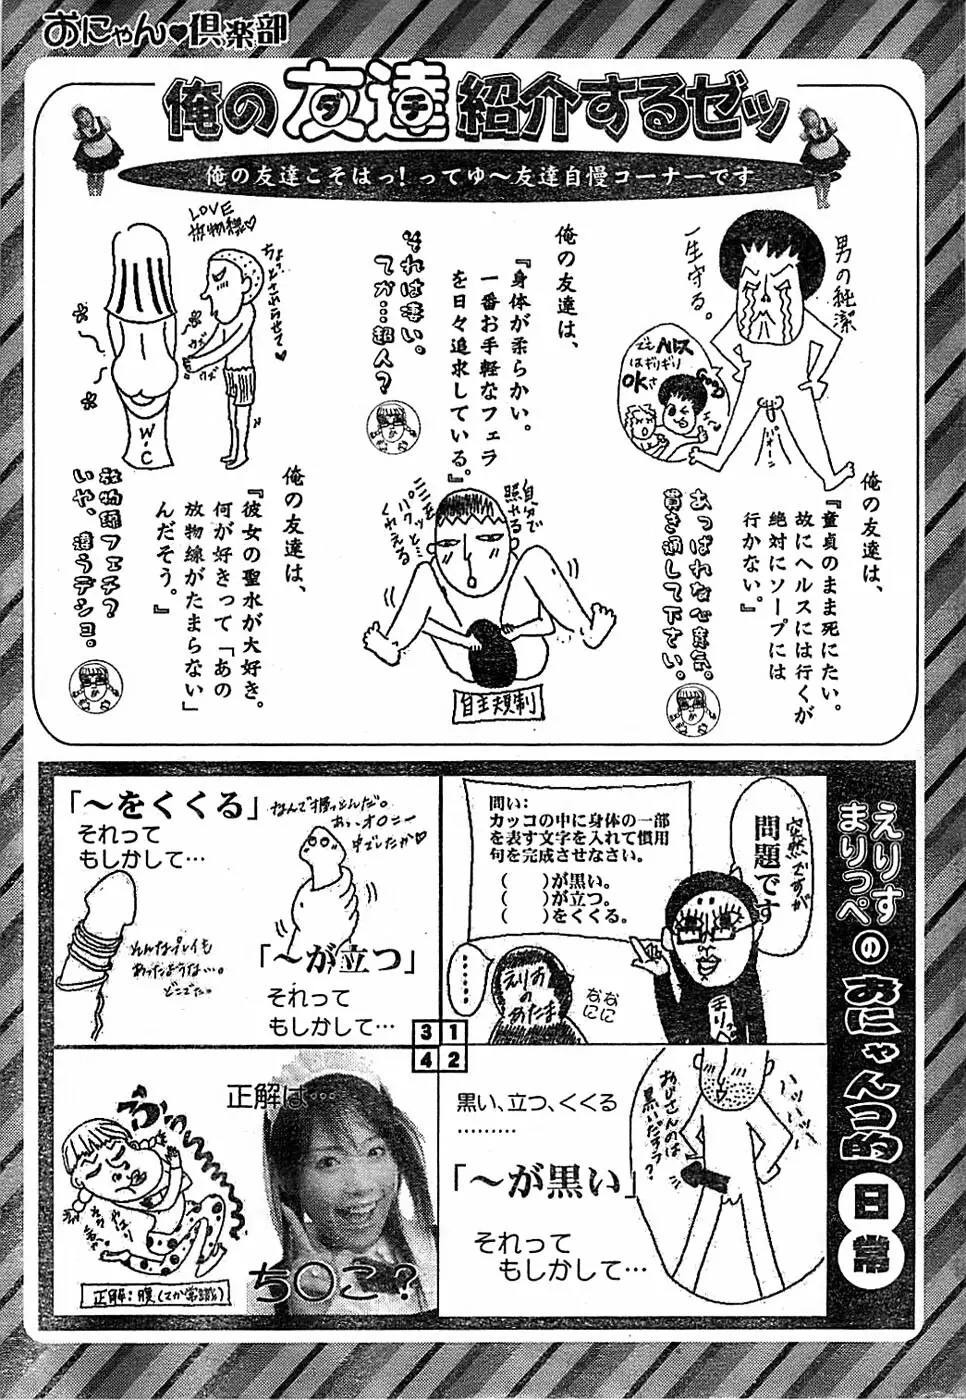 おにゃん♥倶楽部
俺の友達紹介するゼッ
ダチ
俺の友達こそはっ!ってゆ〜友達自慢コーナーです
俺の友達は、
『童貞のまま死にたい。
故にヘルスには行くが
絶対にソープには
行かない。』
あっぱれな心意気。
貫き通して下さい。
男の純潔
一生守る。
でもヘルス
はギリギリ
OKさ
俺の友達は、
『身体が柔らかい。
一番お手軽なフェラ
を日々追求している。』
それは凄い。
てか…超人?
自分で
照やる
パクッと…
くわえる
自主規制
俺の友達は、
『彼女の聖水が大好き。
何が好きって「あの
放物線がたまらない」
んだそう。』
放物線フェチ?
いや、違うデショ。
LOVE
放物線♡
ちょっとさわらせて♡
W・C
えりす
まりっぺ
のおにゃんコ的日常
1
突然ですが
問題です
問い:
カッコの中に身体の一部
を表す文字を入れて慣用
句を完成させなさい。
( )が黒い。
( )が立つ。
( )をくくる。
……
えりすの
あたま
なになに
2
黒い、立つ、くくる
………
「〜が黒い」
それって
もしかして…
おじさんのは
黒いだろう?
3
「〜が立つ」
それって
もしかして…
「〜をくくる」
それって
もしかして…
そんなプレイも
あったような…。
どこでだ。
4
正解は…
ち○こ?
正解:腹(てか常識)